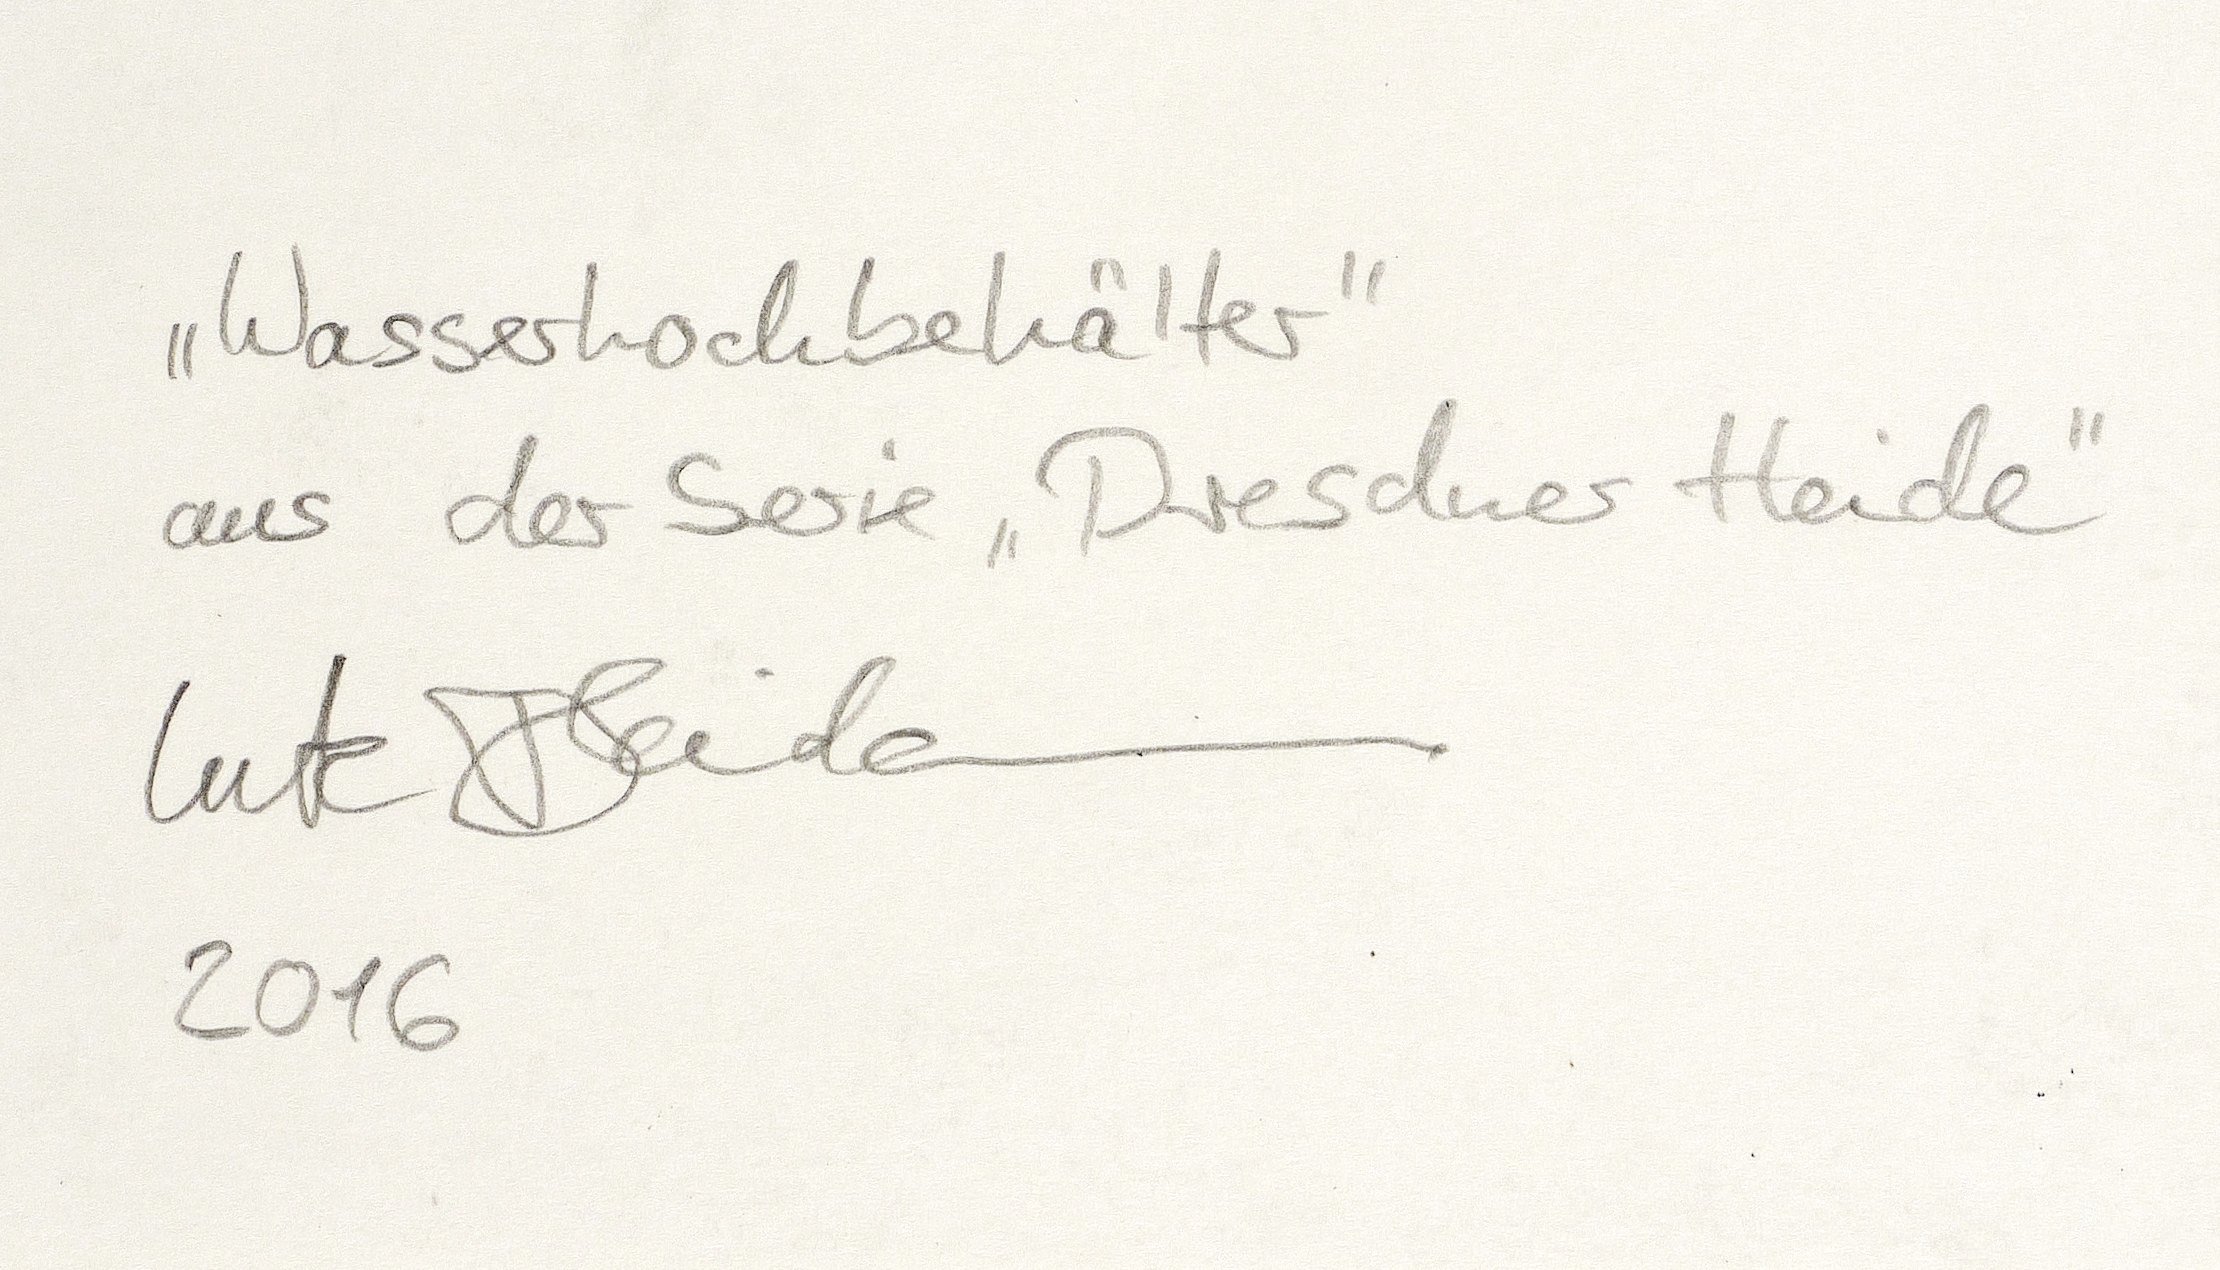 „Wasserhochbehälter"
aus der Serie „Dresdner Heide"
2016